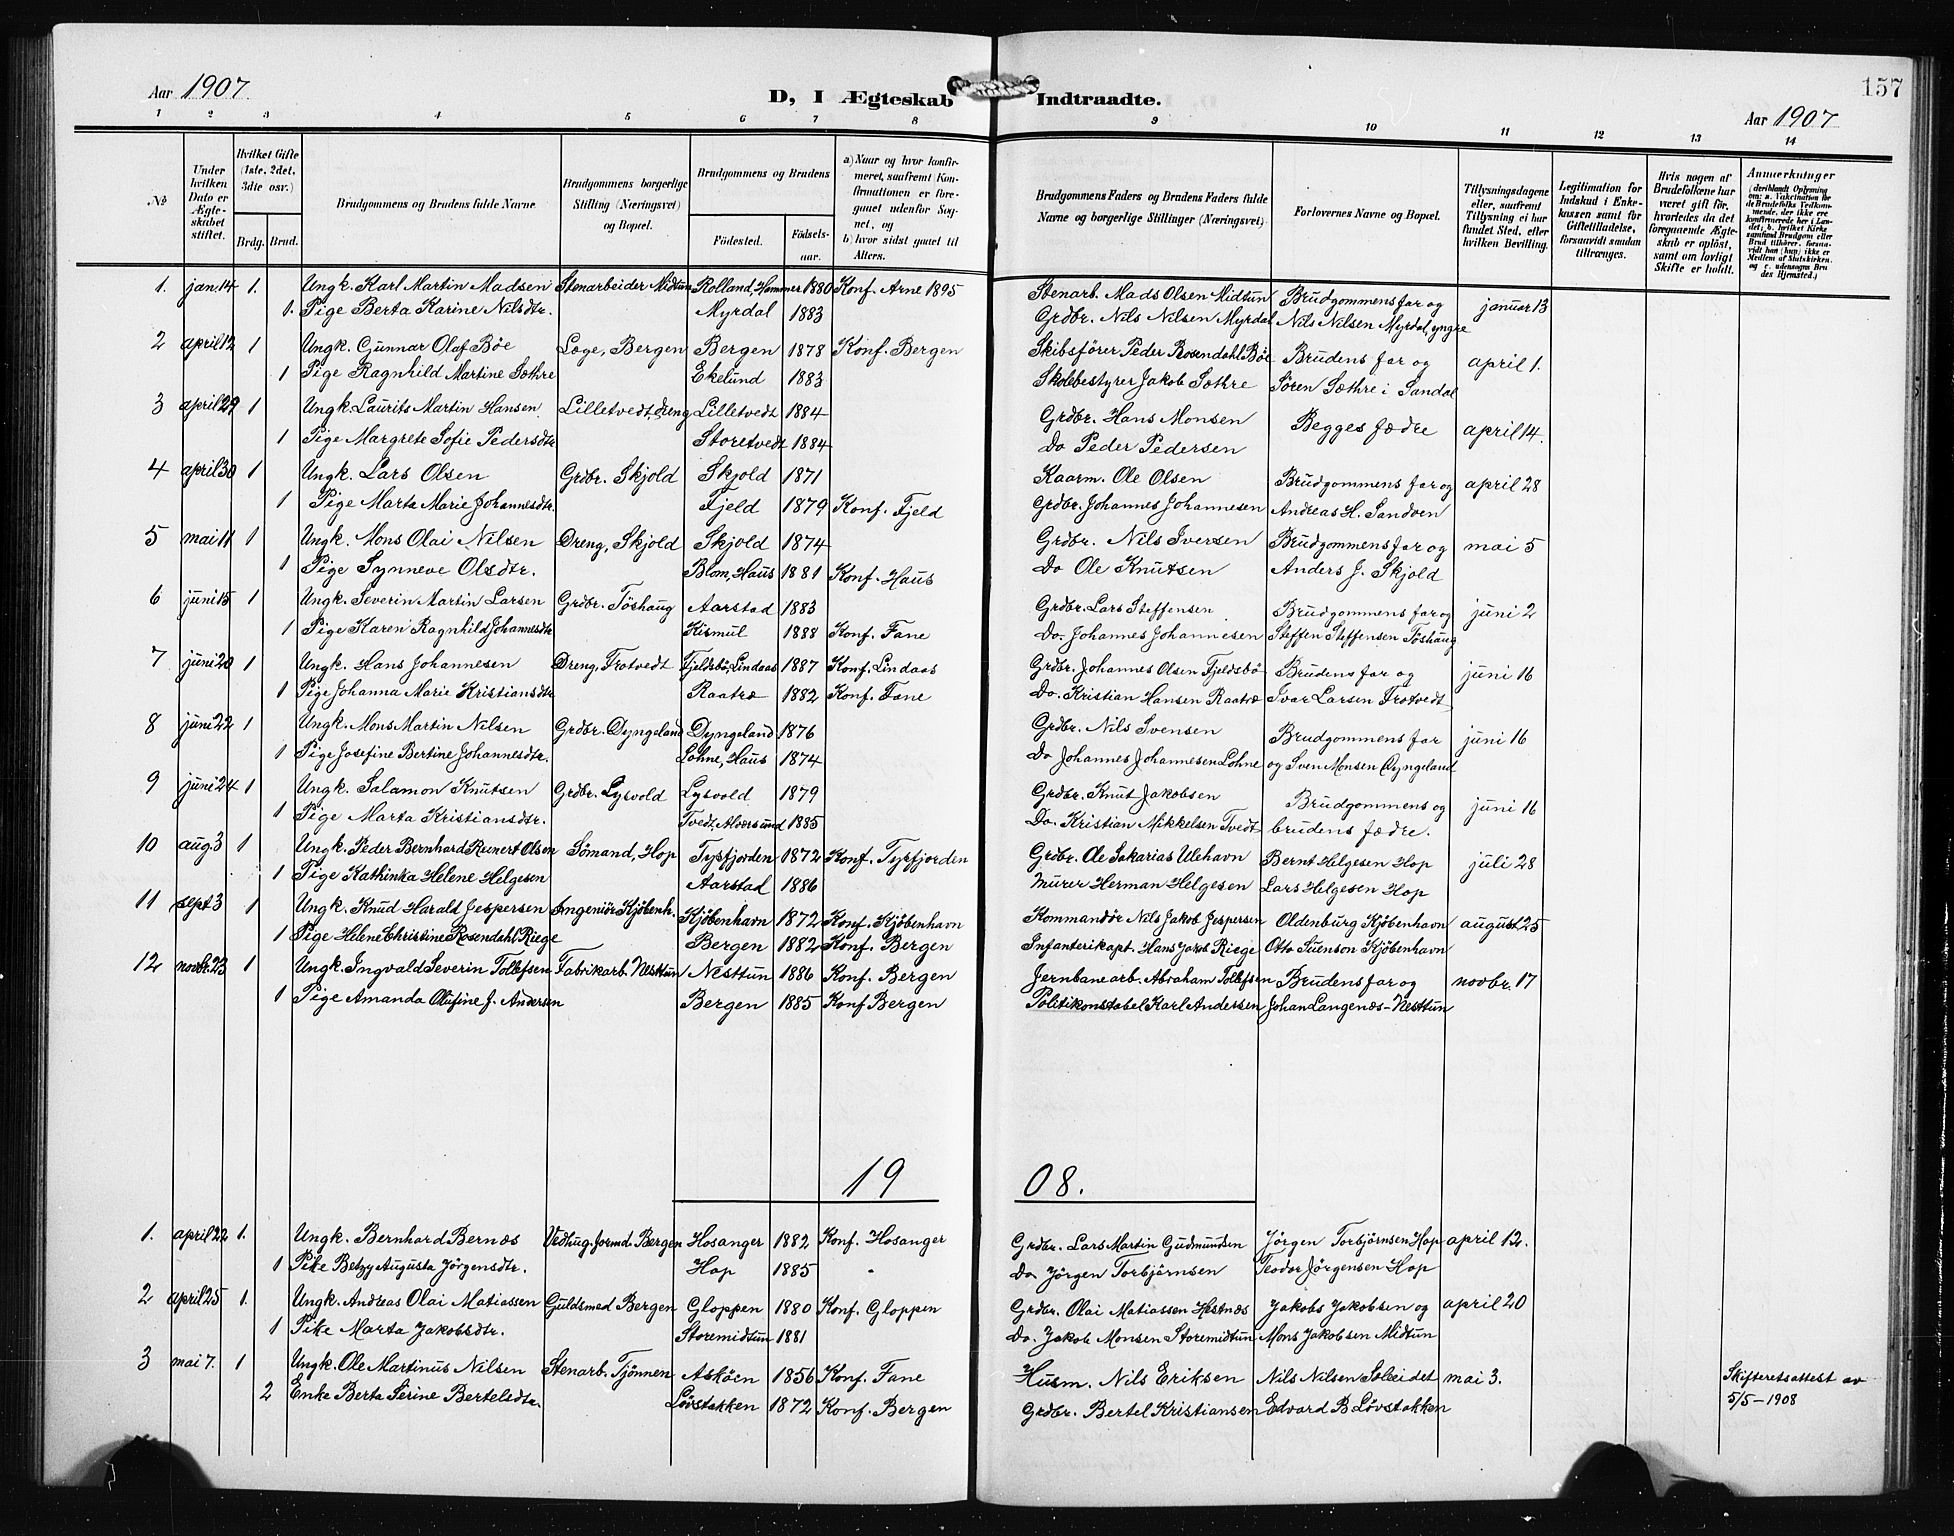 Aar 1907.
D, I Ægteskab Indtraadte.
157
Aar 1907
1 2 3 4 5 6 7 8 9 10 11 12 13 14
№
Under hvilken Dato er Ægteskabet stiftet.
Hvilket Gifte (1ste, 2det, 3dte osv.)
Brdg. Brud.
Brudgommens og Brudens fulde Navne
Brudgommens borgerlige Stilling (Næringsvei) og Bopæl.
Brudgommens og Brudens
Fødested.
Fødselsaar.
a) Naar og hvor konfirmeret, saafremt Konfirmationen er foregaaet udenfor Sognet, og
b) hvor sidst gaaet til Alters.
Brudgommens Faders og Brudens Faders fulde Navne og borgerlige Stillinger (Næringsvei).
Forlovernes Navne og Bopæl.
Tillysningsdagene eller, saafremt Tillysning ei har fundet Sted, efter hvilken Bevilling.
Legitimation for Indskud i Enkekassen samt for Giftetilladelse, forsaavidt saadan tiltrænges.
Hvis nogen af Brudefolkene har været gift før, hvorledes da det foregaaende Ægteskab er opløst, samt om lovligt Skifte er holdt.
Anmærkninger (deriblandt Oplysning om: a. Vakcination for de Brudefolks Vedkommende, der ikke ere konfirmerede her i Landet; b. hvilket Kirkesamfund Brudgom eller Brud tilhører, forsaavidt han (hun) ikke er Medlem af Statskirken, og c. udensogns Brudes Hjemsted.)
1. jan. 14 1. Ungk. Karl Martin Madsen Stenarbeider Midtun Rolland, Hammer 1880 Konf. Arne 1895 Stenarb. Mads Olsen Midtun Brudgommens far og januar 13
1. Pige Berta Karine Nilsdtr. Myrdal 1883 Grdbr. Nils Nilsen Myrdal Nils Nilsen Myrdal, yngre
2 april 12 1 Ungk. Gunnar Olaf Bøe Læge, Bergen Bergen 1878 Konf. Bergen Skibsfører Peder Rosendahl Bøe Brudens far og april 1.
1 Pige Ragnhild Martine Sæthre Ekelund 1883 Skolebestyrer Jakob Sæthre Søren Sæthre i Sandal
3 april 29 1 Ungk. Laurits Martin Hansen Lilletvedt, dreng Lilletvedt 1884 Grdbr. Hans Monsen Begges fædre april 14.
1 Pige Margrete Sofie Pedersdtr Storetvedt 1884 Do Peder Pedersen
4 april 30 1 Ungk. Lars Olsen Grdbr. Skjold Skjold 1871 Kaarm. Ole Olsen Brudgommens far og april 28
1 Pige Marta Marie Johannesdtr. Fjeld 1879 Konf. Fjeld Grdbr. Johannes Johannesen Andreas H. Sandven
5 mai 11 1 Ungk. Mons Olai Nilsen Dreng, Skjold Skjold 1874 Grdbr. Nils Iversen Brudgommens far og mai 5
1 Pige Synneve Olsdtr. Blom, Haus 1881 Konf. Haus Do Ole Knutsen Anders J. Skjold
6 juni 15 1 Ungk. Severin Martin Larsen Grdbr. Tøshaug Aarstad 1883 Grdbr. Lars Steffensen Brudgommens far og juni 2
1 Pige Karen Ragnhild Johannesdtr Kismul 1888 Konf. Fane Do. Johannes Johannesen Steffen Steffensen Tøshaug
7 juni 20 1 Ungk. Hans Johannesen Dreng, Trotvedt Fjeldsbø, Lindaas 1887 Konf. Lindaas Grdbr. Johannes Olsen Fjeldsbø Brudens far og juni 16
1 Pige Johanna Marie Kristiansdtr Raatræ 1882 Konf. Fane Do. Kristian Hansen Raatræ Ivar Larsen Trotvedt
8 juni 22 1 Ungk. Mons Martin Nilsen Grdbr. Dyngeland Dyngeland 1876 Grdbr. Nils Svensen Brudgommens far juni 16
1 Pige Josefine Bertine Johannesdtr. Lohne, Haus 1874 Do Johannes Johannesen Lohne og Sven Monsen Dyngeland
9 juni 24 1 Ungk. Salamon Knutsen Grdbr. Lysvold Lysvold 1879 Grdbr. Knut Jakobsen Brudgommens og juni 16
1 Pige Marta Kristiansdtr. Tvedt, Alversund 1885 Do. Kristian Mikkelsen Tvedt brudens fædre.
10 aug. 3 1 Ungk. Peder Bernhard Reinert Olsen Sømand, Hop Tysfjorden 1872 Konf. Tysfjorden Grdbr. Ole Sakarias Ulehavn Bernt Helgesen Hop juli 28
1 Pige Kathinka Helene Helgesen Aarstad 1886 Murer Herman Helgesen Lars Helgesen Hop
11 sept 3 1 Ungk. Knud Harald Jespersen Ingeniør Kjøbenh. Kjøbenhavn 1872 Konf. Kjøbenhavn Kommandør Nils Jakob Jespersen Oldenburg Kjøbenhavn august 25
1 Pige Helene Christine Rosendahl Riege Bergen 1882 Konf. Bergen Infanterikapt. Hans Jakob Riege Otto Suenson Kjøbenhavn
12 novbr. 23 1 Ungk. Ingvald Severin Tollefsen Fabrikarb. Nesttun Nesttun 1886 Konf. Bergen Jernbanearb. Abraham Tollefsen Brudens far og novbr. 17
1 Pige Amanda Olufine J. Andersen Bergen 1885 Konf Bergen Politikonstabel Karl Andersen Johan Langenæs - Nesttun
19 08.
1. april 22 1. Ungk. Bernhard Bernæs Vedhug. formd. Bergen Hosanger 1882 Konf. Hosanger Grdbr. Lars Martin Gudmundsen Jørgen Torbjørnsen Hop april 12.
1 Pike Betzy Augusta Jørgensdtr. Hop 1885 Do Jørgen Torbjørnsen Teodor Jørgensen Hop
2 april 25 1. Ungk. Andreas Olai Matiassen Guldsmed Bergen Gloppen 1880 Konf. Gloppen Grdbr. Olai Matiassen Hestnæs Jakobs Jakobsen og april 20
1 Pike Marta Jakobsdtr. Storemidtun 1881 Do. Jakob Monsen Storemidtun Mons Jakobsen Midtun
3 mai 7. 1 Ungk. Ole Martinus Nilsen Stenarb. Tjønnen Askøen 1856 Konf. Fane Husm. Nils Eriksen Nils Nilsen Soleidet mai 3. Skifteretsattest av
2 Enke Berta Serine Berteledtr. Løvstakken 1872 Konf. Bergen Grdbr. Bertel Kristiansen Edvard B Løvstakken 5/5 - 1908